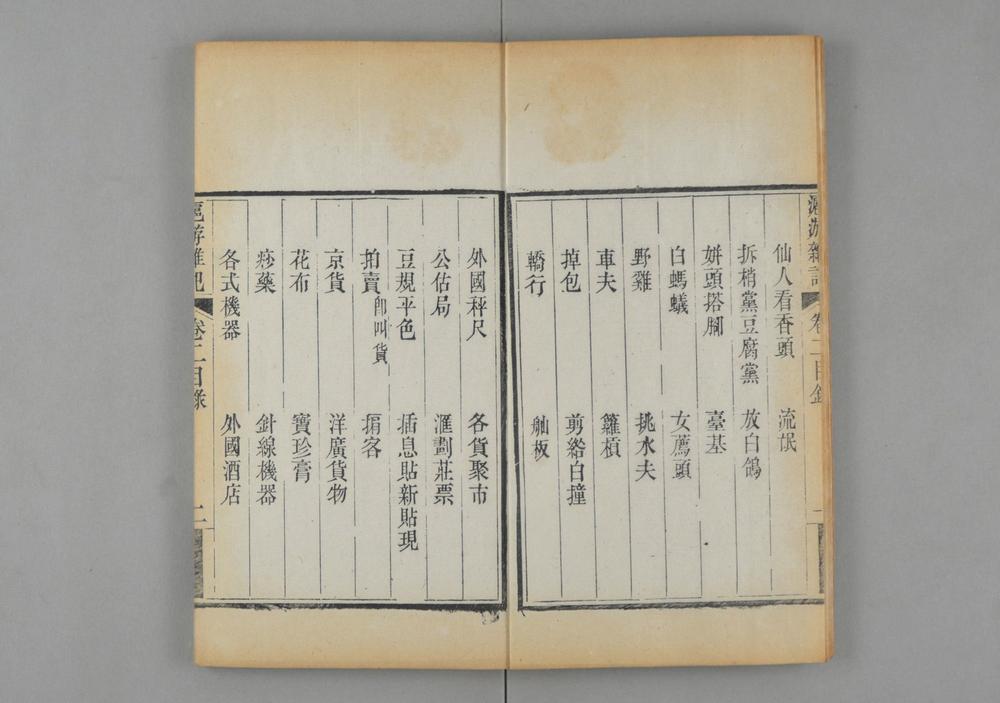 滬游雜記 卷二目錄 一
仙人看香頭 流氓
拆梢黨豆腐黨 放白鴿
姘頭搭腳 臺基
白螞蟻 女薦頭
野雞 挑水夫
車夫 籮槓
掉包 剪綹白撞
轎行 舢板
外國秤尺 各貨聚市
公估局 滙劃莊票
豆規平色 插息貼新貼現
拍賣即叫貨 掮客
京貨 洋廣貨物
花布 寶珍膏
痧藥 針線機器
各式機器 外國酒店
滬游雜記 卷二目錄 二